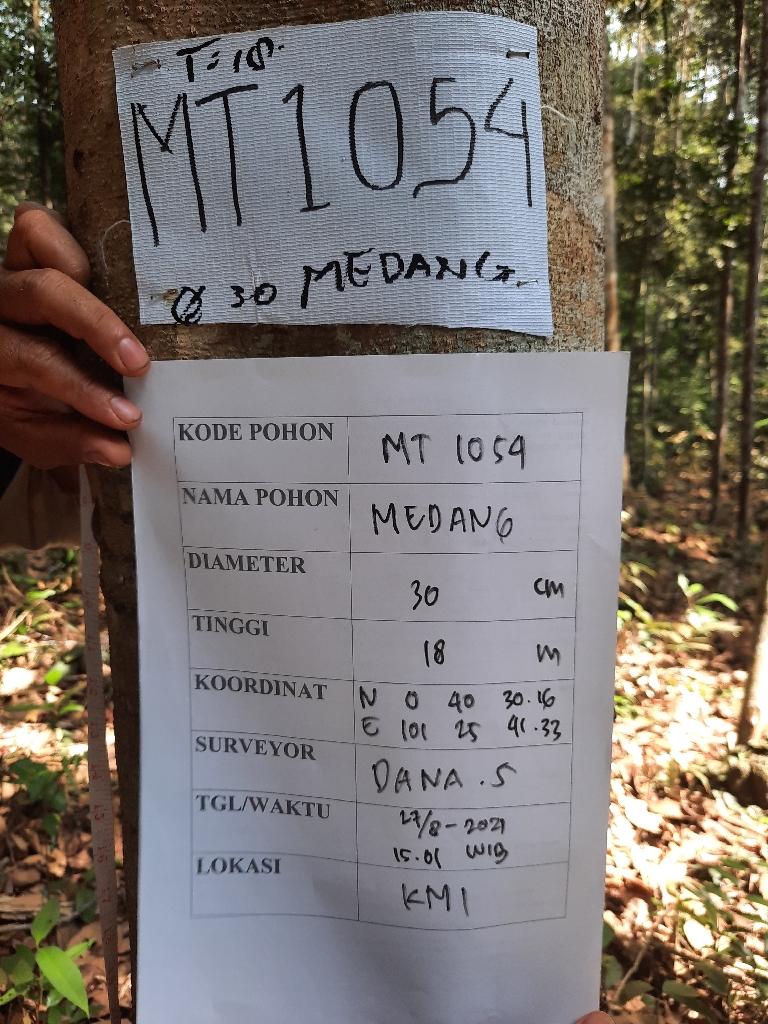 T=18.
MT1054
Ø 30 MEDANG.
KODE POHON MT 1054
NAMA POHON MEDANG
DIAMETER 30 cm
TINGGI 18 m
KOORDINAT N 0 40 30.16
E 101 25 41.33
SURVEYOR DANA.S
TGL/WAKTU 27/8-2021
15.01 WIB
LOKASI KMI